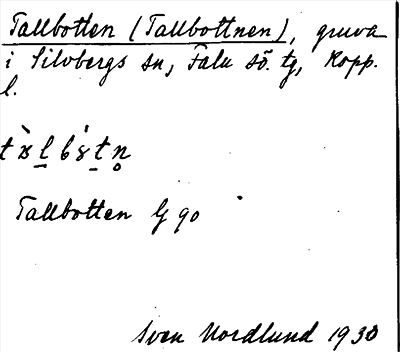 Tallbotten (Tallbottnen), gruva
i Silvbergs sn, Falu sö. tg, Kopp.
l.
Tallbotten G 90
Sven Nordlund 1930